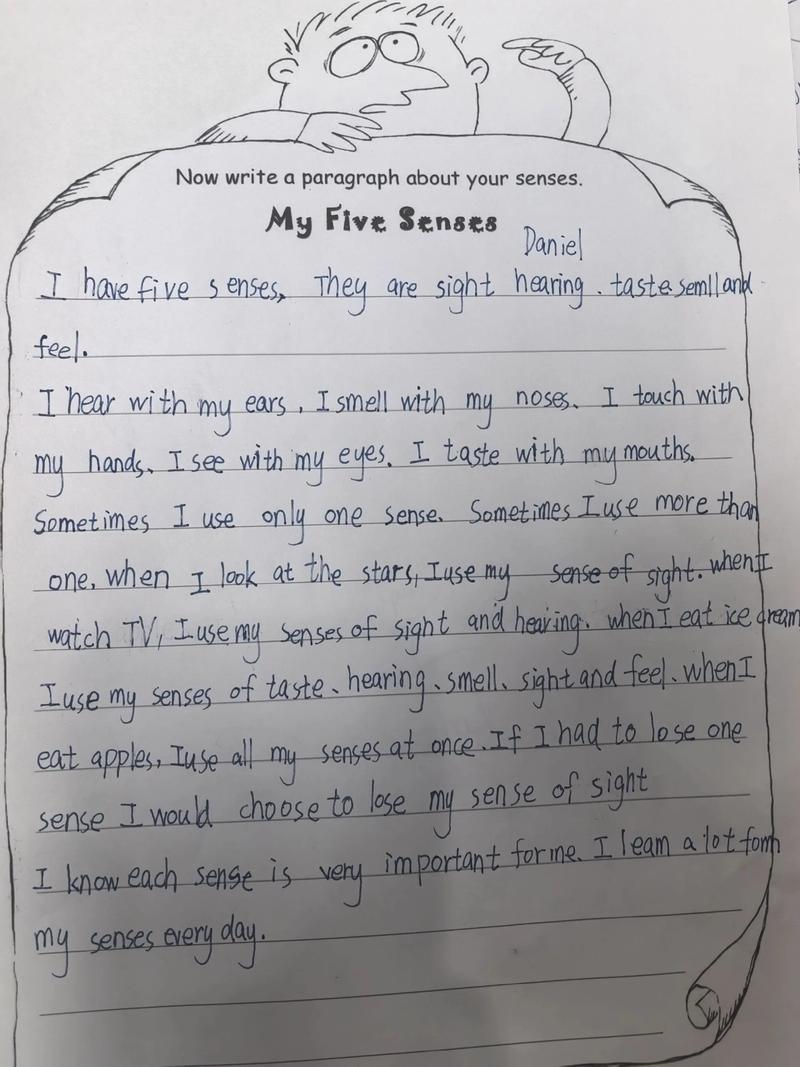 Now write a paragraph about your senses.
My Five Senses
Daniel
I have five senses, They are sight hearing . taste semll and
feel.
I hear with my ears , I smell with my noses. I touch with
my hands. I see with my eyes. I taste with my mouths.
Sometimes I use only one sense. Sometimes I use more than
one. when I look at the stars, I use my sense of sight. when I
watch TV, I use my senses of sight and hearing. when I eat ice dream
I use my senses of taste、hearing、smell、sight and feel. when I
eat apples, I use all my senses at once. If I had to lose one
sense I would choose to lose my sense of sight
I know each sense is very important for me. I leam a lot fom
my senses every day.